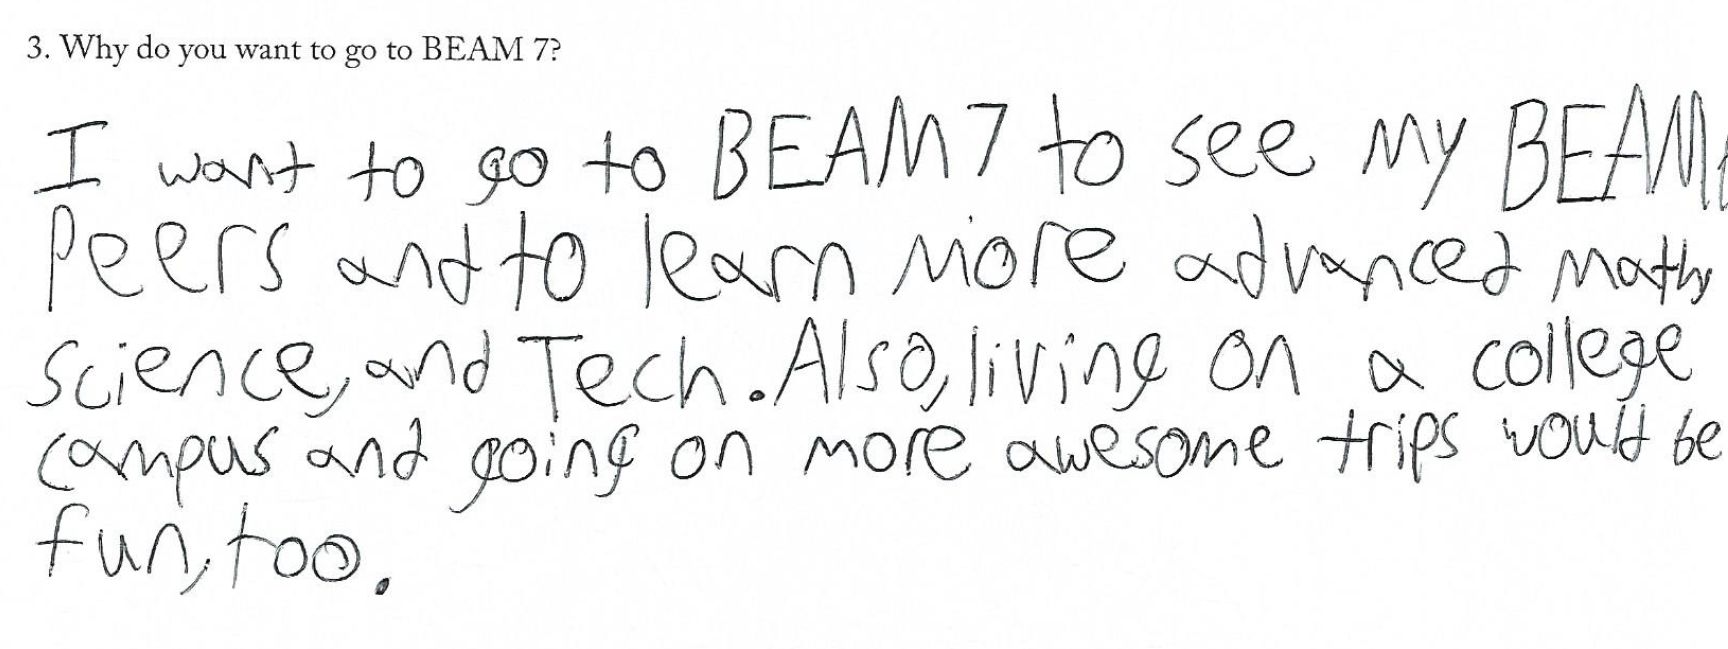 3. Why do you want to go to BEAM 7?
I want to go to BEAM7 to see my BEAM
Peers and to learn more advanced math,
science, and Tech. Also, living on a college
campus and going on more awesome trips would be
fun, too.